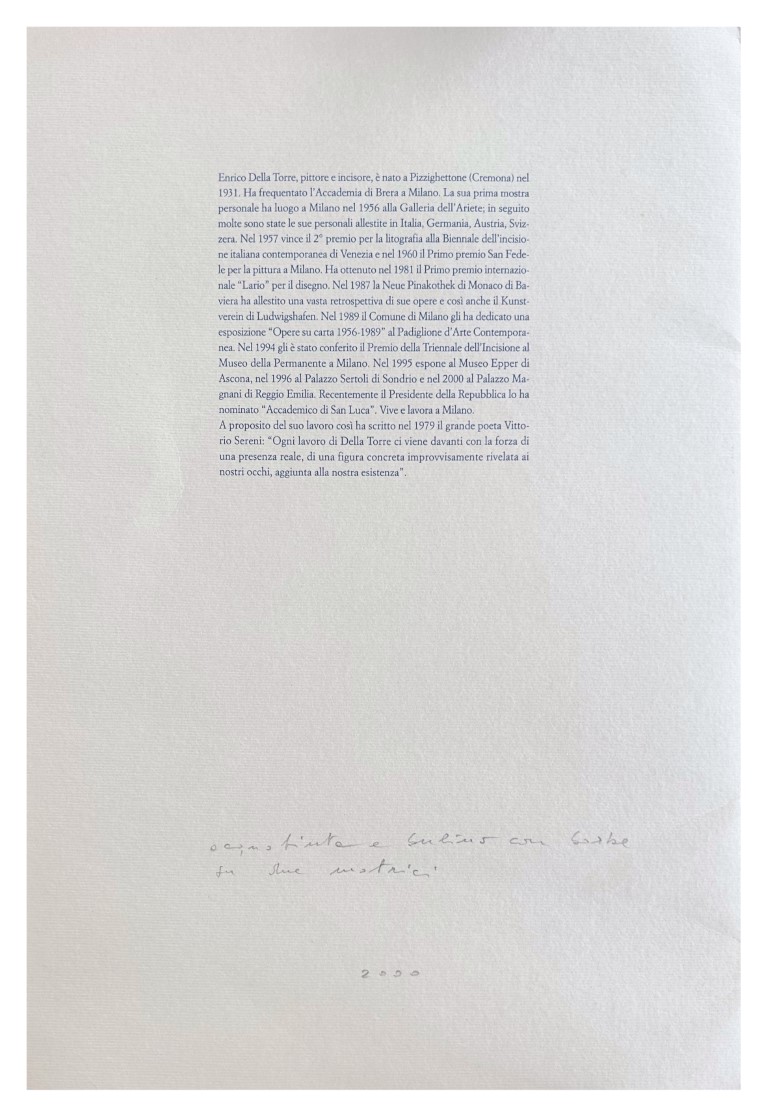 Enrico Della Torre, pittore e incisore, è nato a Pizzighettone (Cremona) nel
1931. Ha frequentato l'Accademia di Brera a Milano. La sua prima mostra
personale ha luogo a Milano nel 1956 alla Galleria dell'Ariete; in seguito
molte sono state le sue personali allestite in Italia, Germania, Austria, Sviz-
zera. Nel 1957 vince il 2° premio per la litografia alla Biennale dell'incisio-
ne italiana contemporanea di Venezia e nel 1960 il Primo premio San Fede-
le per la pittura a Milano. Ha ottenuto nel 1981 il Primo premio internazio-
nale "Lario" per il disegno. Nel 1987 la Neue Pinakothek di Monaco di Ba-
viera ha allestito una vasta retrospettiva di sue opere e così anche il Kunst-
verein di Ludwigshafen. Nel 1989 il Comune di Milano gli ha dedicato una
esposizione "Opere su carta 1956-1989" al Padiglione d'Arte Contempora-
nea. Nel 1994 gli è stato conferito il Premio della Triennale dell'Incisione al
Museo della Permanente a Milano. Nel 1995 espone al Museo Epper di
Ascona, nel 1996 al Palazzo Sertoli di Sondrio e nel 2000 al Palazzo Ma-
gnani di Reggio Emilia. Recentemente il Presidente della Repubblica lo ha
nominato "Accademico di San Luca". Vive e lavora a Milano.
A proposito del suo lavoro così ha scritto nel 1979 il grande poeta Vitto-
rio Sereni: "Ogni lavoro di Della Torre ci viene davanti con la forza di
una presenza reale, di una figura concreta improvvisamente rivelata ai
nostri occhi, aggiunta alla nostra esistenza".
acquatinta e bulino con barbe
su due matrici
2000